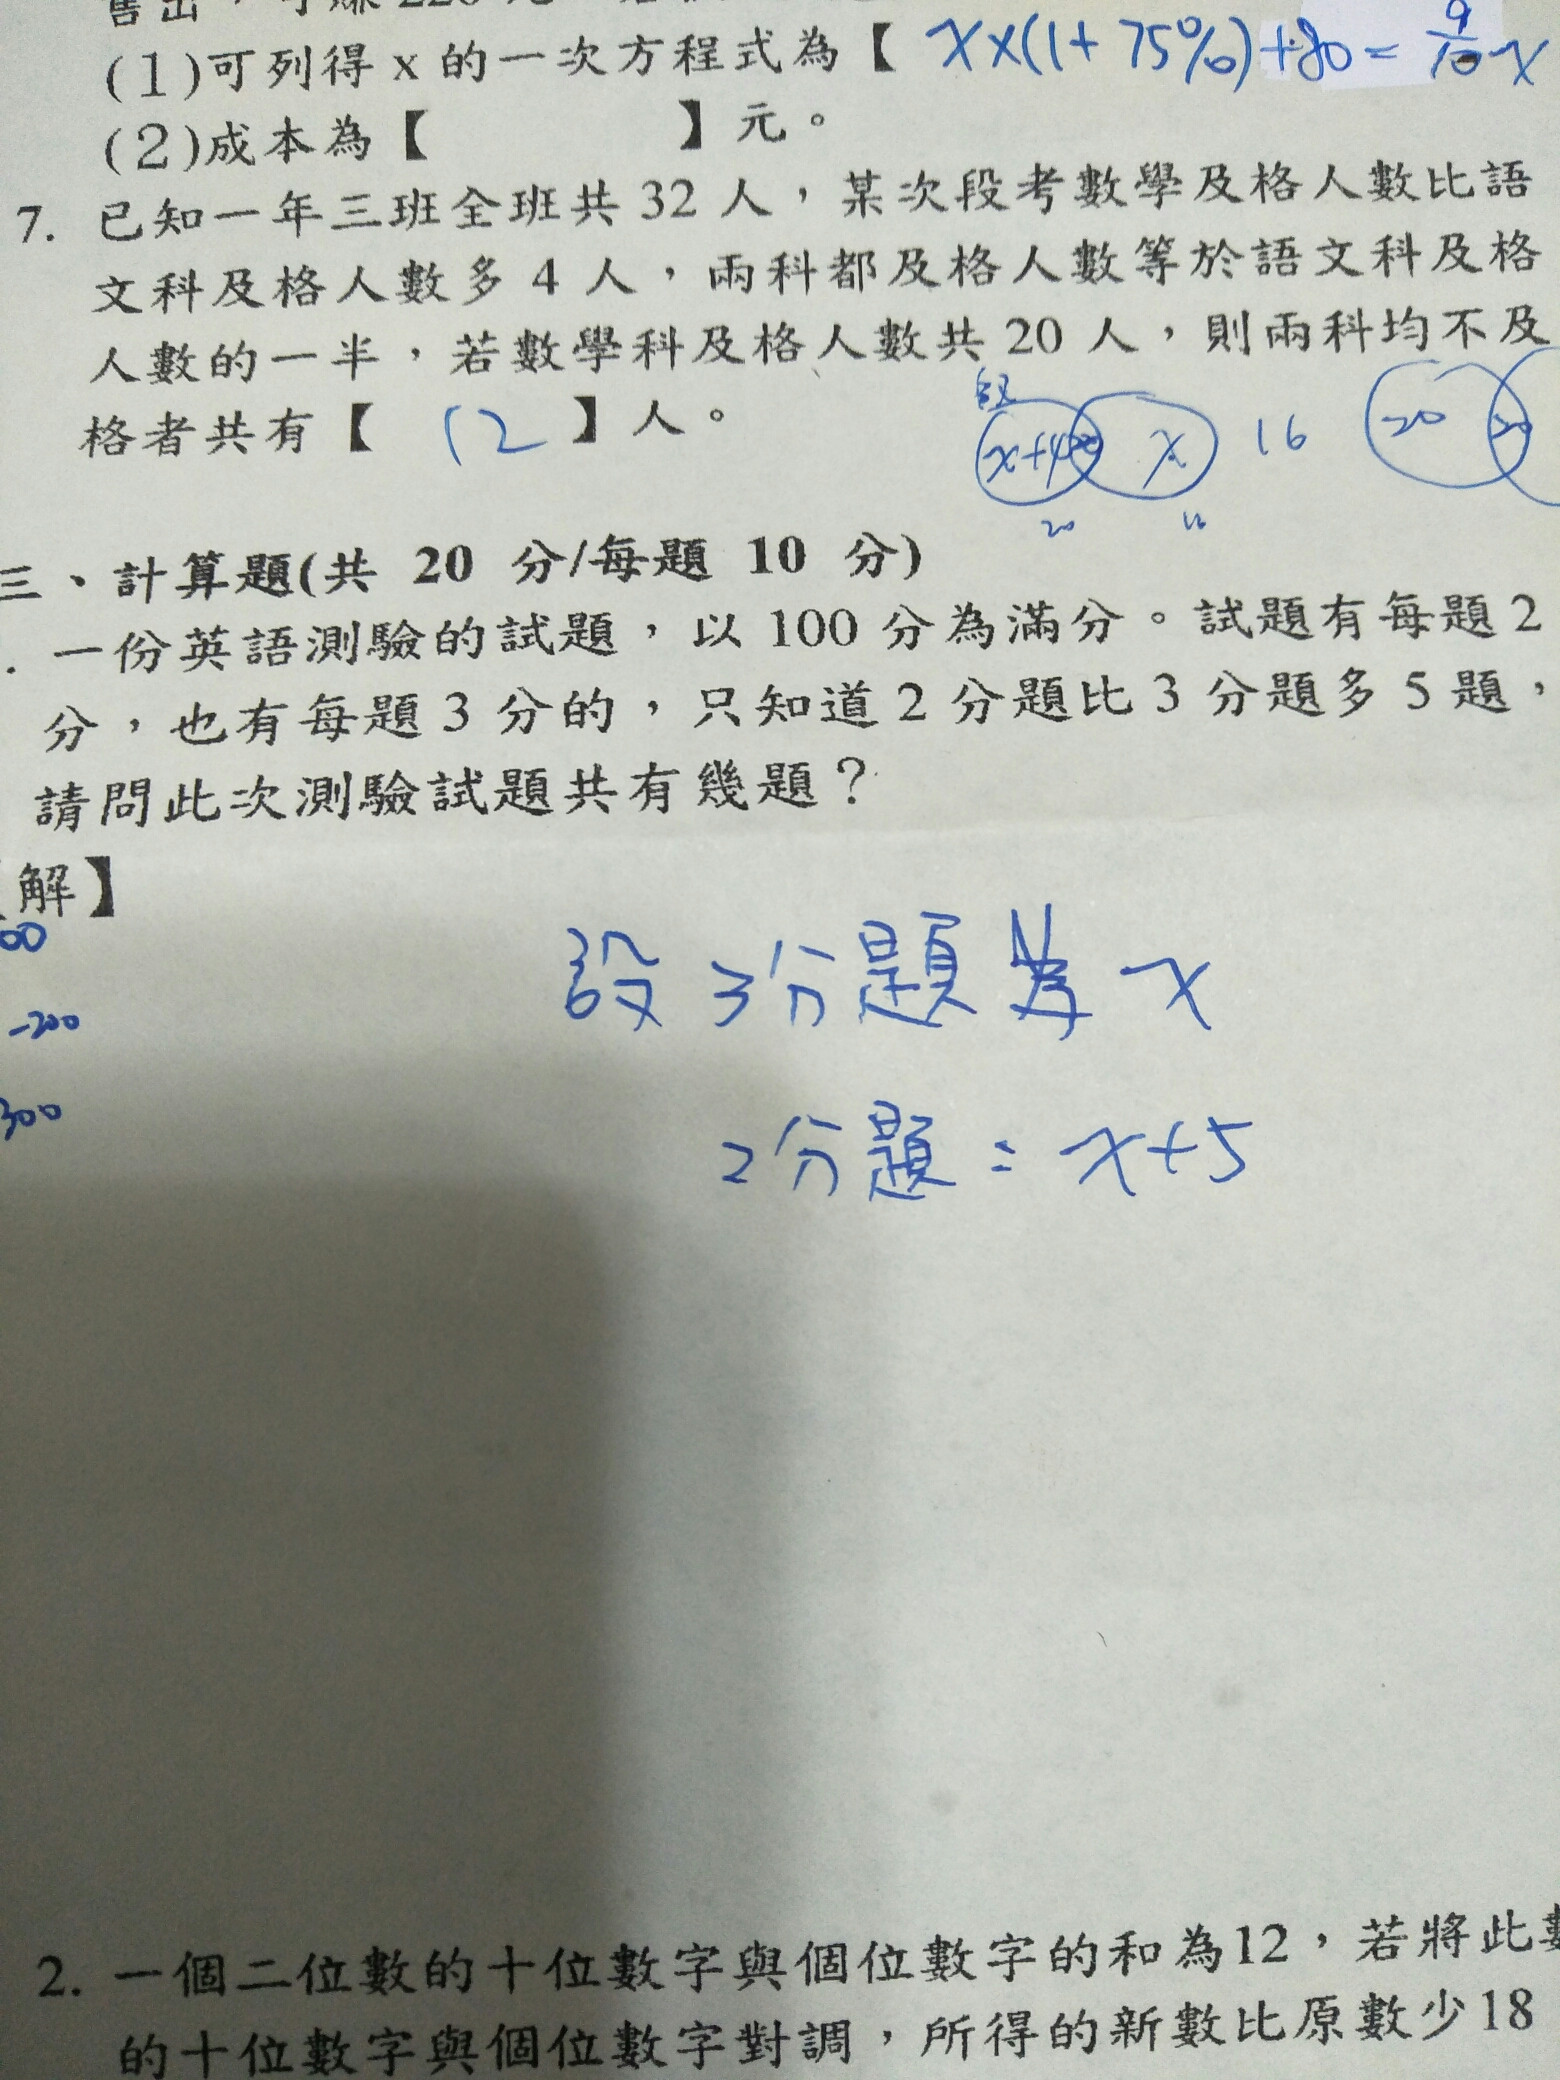 (1)可列得 x 的一次方程式為【 x×(1+75%)+80=9/10 x
(2)成本為【 】元。
7. 已知一年三班全班共 32 人，某次段考數學及格人數比語
文科及格人數多 4 人，兩科都及格人數等於語文科及格
人數的一半，若數學科及格人數共 20 人，則兩科均不及
格者共有【 12 】人。
x+4 x 16 20
20 16
三、計算題(共 20 分/每題 10 分)
. 一份英語測驗的試題，以 100 分為滿分。試題有每題 2
分，也有每題 3 分的，只知道 2 分題比 3 分題多 5 題，
請問此次測驗試題共有幾題？
解】
00
設 3分題為 x
-200
300
2分題 = x+5
2. 一個二位數的十位數字與個位數字的和為12，若將此
的十位數字與個位數字對調，所得的新數比原數少18